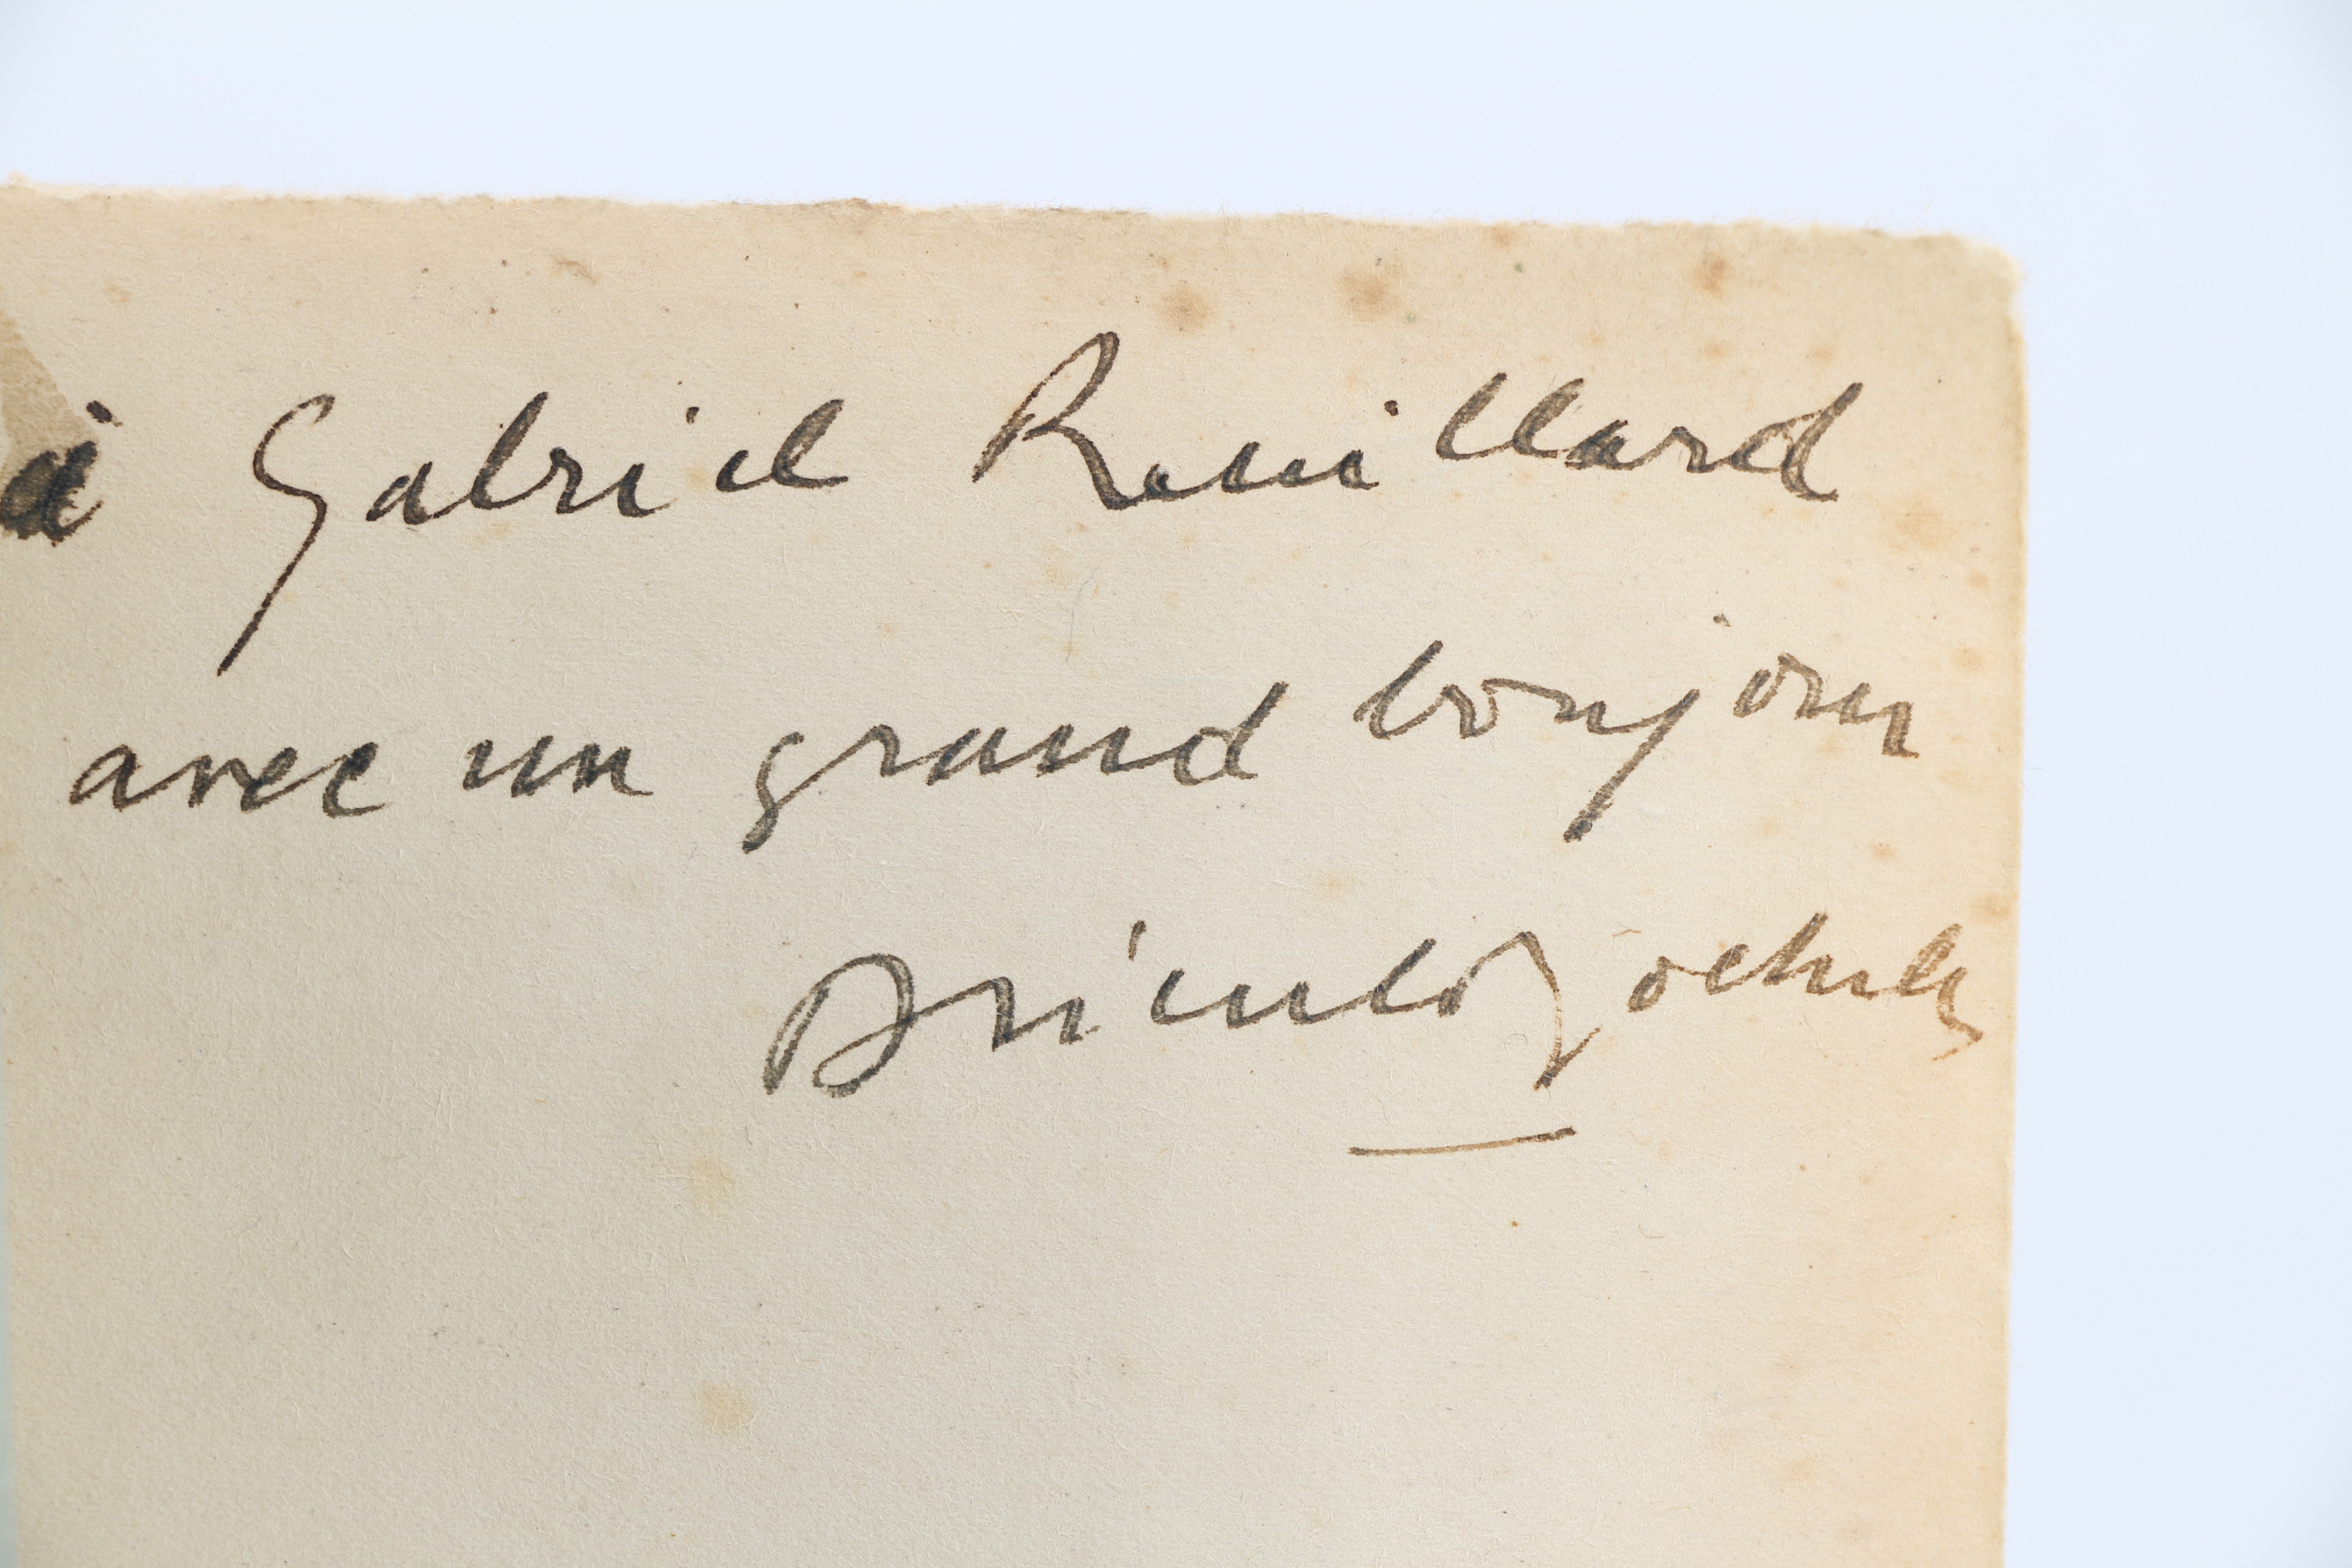 à Gabriel Reuillard
avec un grand bonjour
Drieu la Rochelle